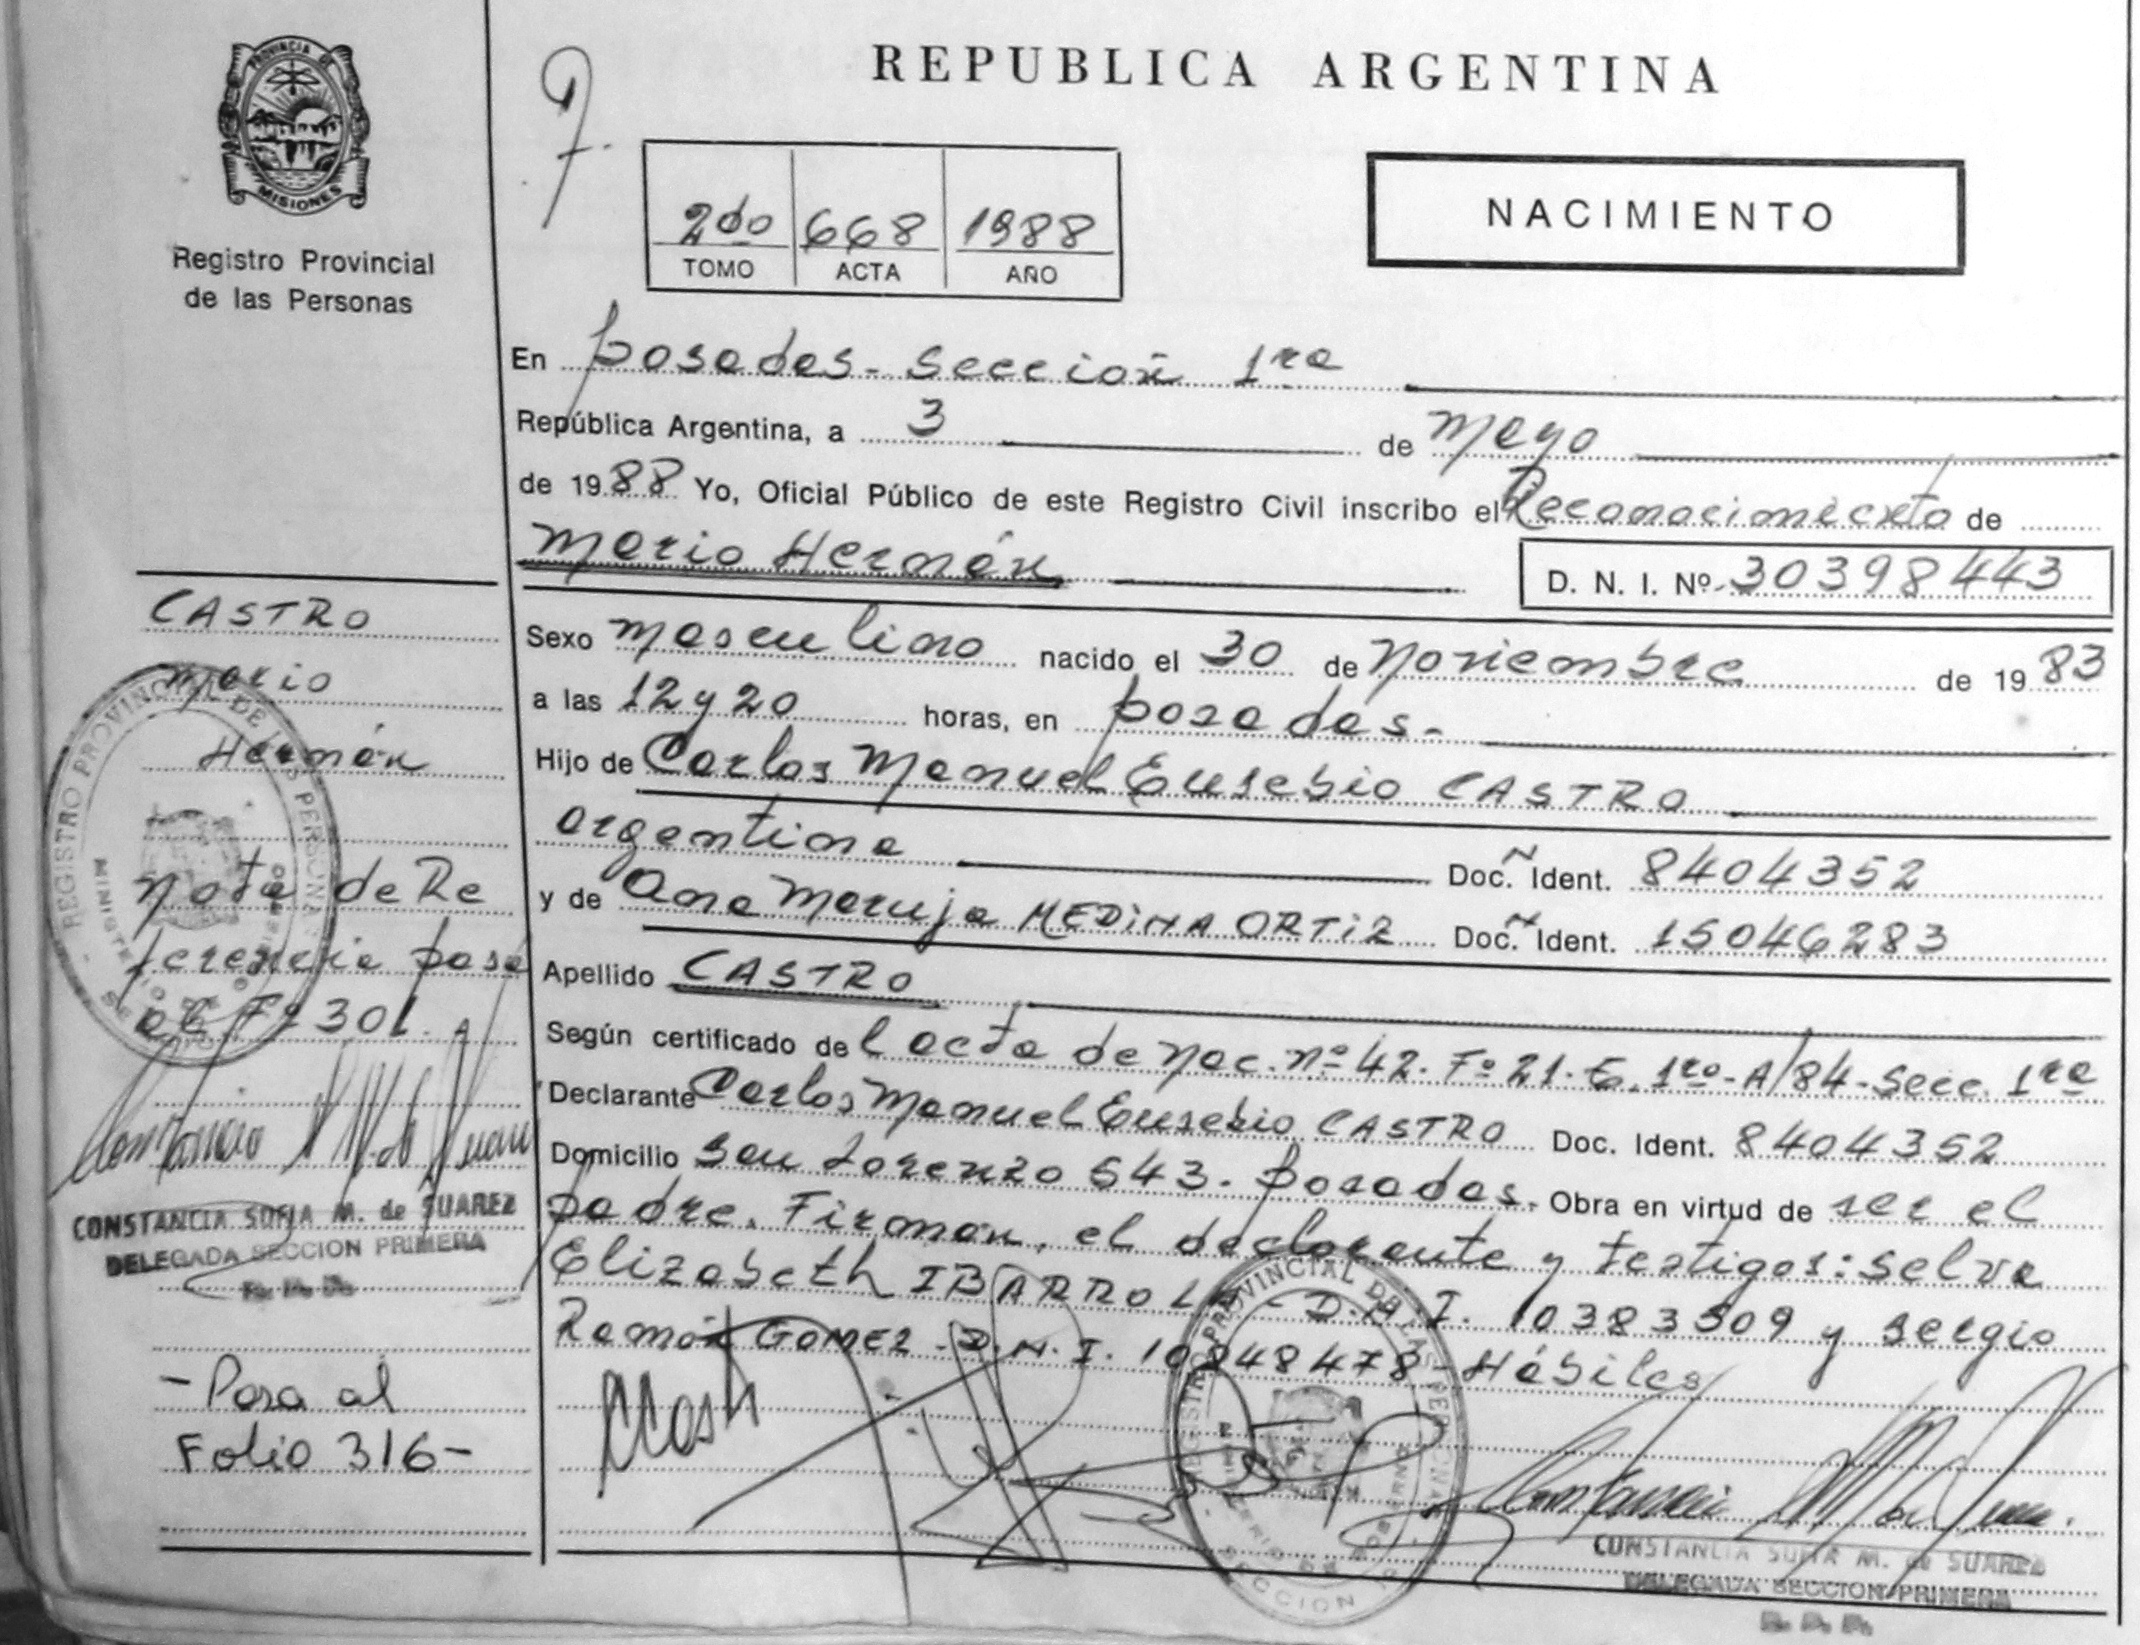 PROVINCIA DE
MISIONES
Registro Provincial
de las Personas
REPUBLICA ARGENTINA
NACIMIENTO
2do 668 1988
TOMO ACTA AÑO
En Posadas - Sección 1ra
República Argentina, a 3 de Mayo
de 1988 Yo, Oficial Público de este Registro Civil inscribo el Reconocimiento de
Mario Hernán D. N. I. Nº 30398443
Sexo Masculino nacido el 30 de Noviembre de 1983
a las 12 y 20 horas, en Posadas.-
Hijo de Carlos Manuel Eusebio CASTRO
argentina Doc. Ident. 8404352
y de Ana Maruja MEDINA ORTIZ Doc. Ident. 15046283
Apellido CASTRO
Según certificado del acta de Nac. Nº 42. Fº 21. 1ro - A/84 - Secc. 1ra
Declarante Carlos Manuel Eusebio CASTRO Doc. Ident. 8404352
Domicilio San Lorenzo 543. Posadas. Obra en virtud de ser el
padre. Firman, el declarante y testigos: Selva
Elizabeth IBARROLA - D.N.I. 10383509 y Sergio
Ramón GOMEZ - D.N.I. 10848478 - Hábiles
CASTRO
Mario
Hernán
Nota de Re
ferencia pasa
al Fº 301.
CONSTANCIA SOFIA M. de SUAREZ
DELEGADA SECCION PRIMERA
R. P. P.
- Pasa al
Folio 316 -
REGISTRO PROVINCIAL DE LAS PERSONAS
MINISTERIO DE GOBIERNO
REGISTRO PROVINCIAL DE LAS PERSONAS
MINISTERIO DE GOBIERNO
SECCION
CONSTANCIA SOFIA M. de SUAREZ
DELEGADA SECCION PRIMERA
R. P. P.